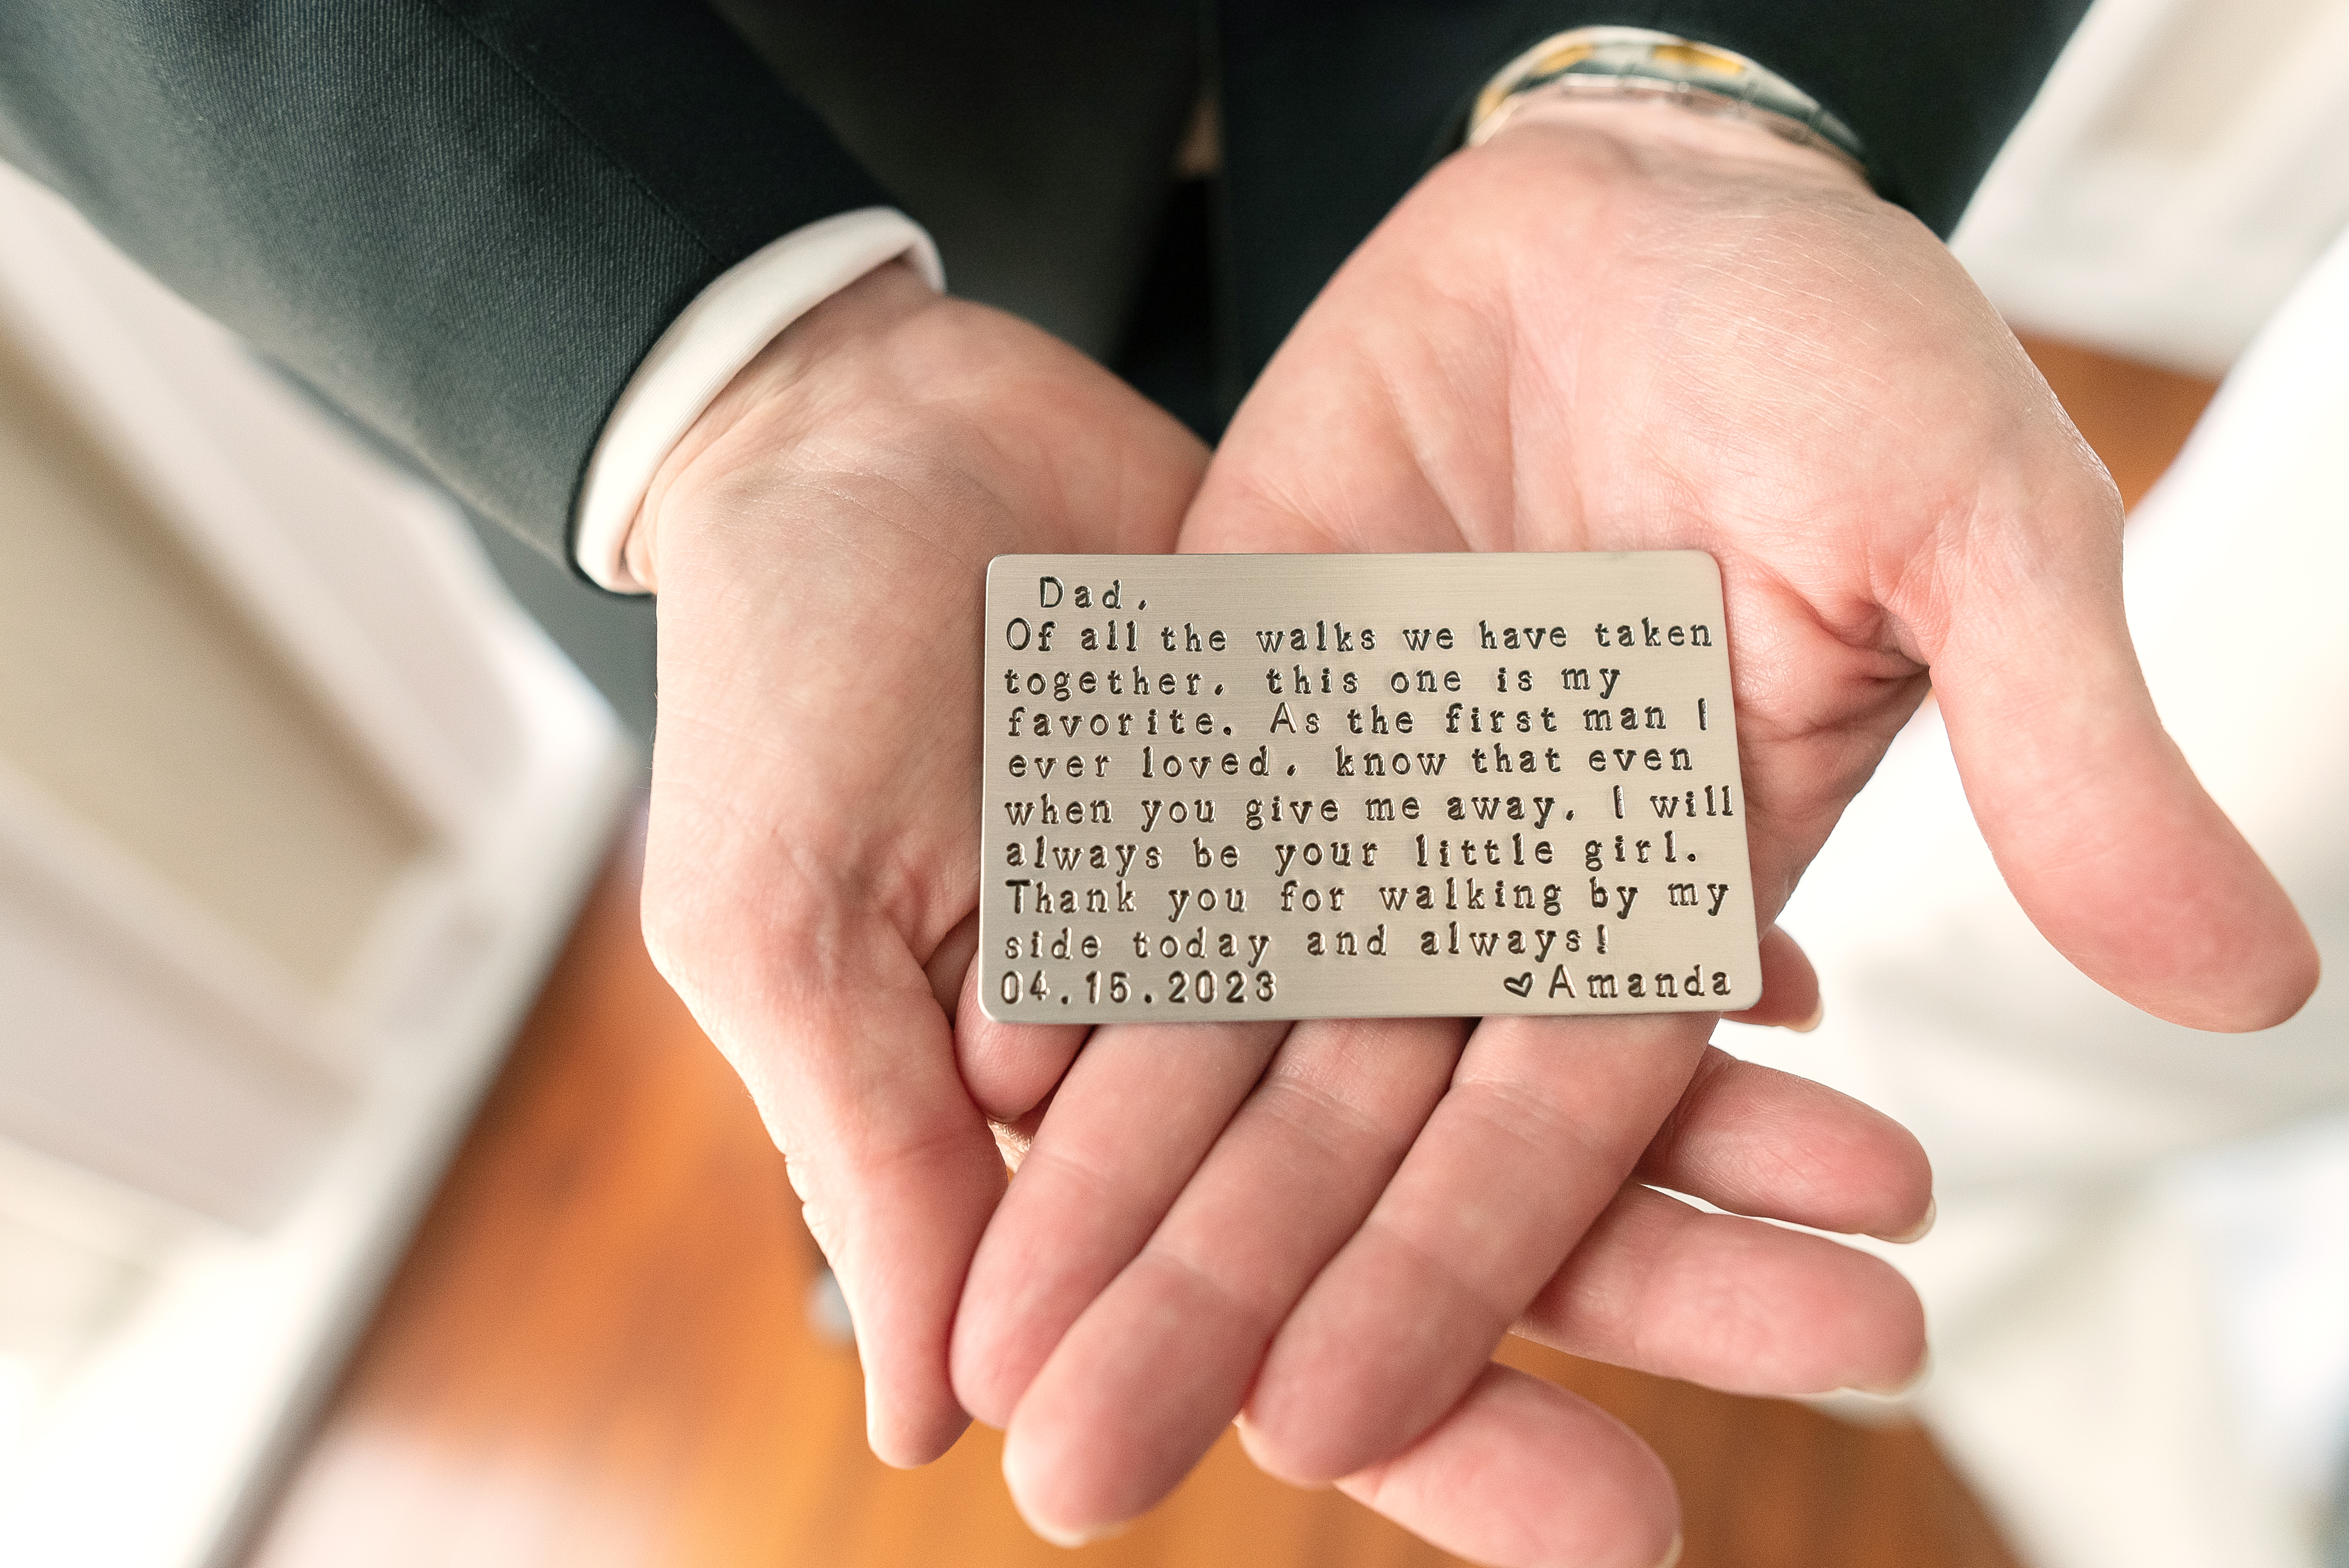 Dad,
Of all the walks we have taken
together, this one is my
favorite. As the first man I
ever loved, know that even
when you give me away, I will
always be your little girl.
Thank you for walking by my
side today and always!
04.15.2023 ♥Amanda